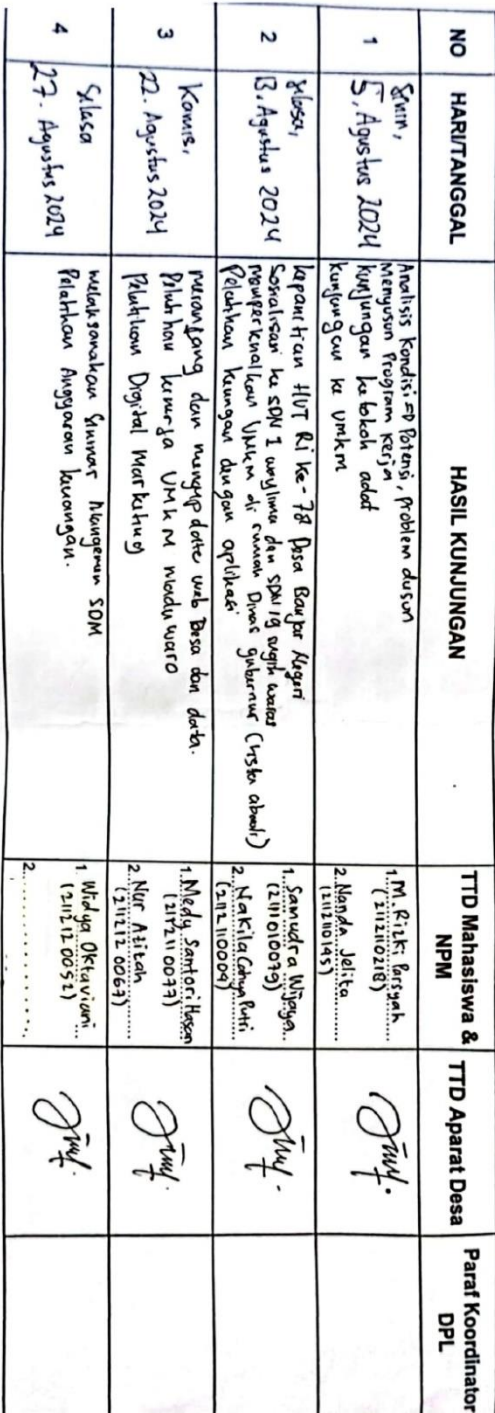 NO
HARI/TANGGAL
HASIL KUNJUNGAN
TTD Mahasiswa & NPM
TTD Aparat Desa
Paraf Koordinator DPL
1
Senin,
5, Agustus 2024
Analisis Kondisi => Potensi, problem dusun
Menyusun Program kerja
Kunjungan ke tokoh adat
kunjungan ke umkm
1. M. Rizki Parsyah
(2112110218)
2. Nanda Jelita
(2112110195)
2
Selasa,
13, Agustus 2024
kepanitian HUT RI Ke-78 Desa Banjar Negeri
Sosialisasi ke SDN 1 waylima dan SDN 19 waras
memperkenalkan Umkm di rumah Dinas gubernur
Pelatihan keungan dengan aplikasi
1. Samudra Wijaya
(2111010079)
2. Nakila Cahya Putri
(2112110009)
3
Kamis,
22. Agustus 2024
merancang dan mengupdate web Desa dan data.
Pelatihan kemurja UMKM madu waro
Pelatihan Digital Marketing
1. Medy Santori Hasan
(2112110077)
2. Nur Azizah
(2112120067)
4
Selasa
27. Agustus 2024
melaksanakan Seminar Mangemen SDM
Pelatihan Anggaran keuangan.
1. Widya Oktaviani
(2112120052)
2.